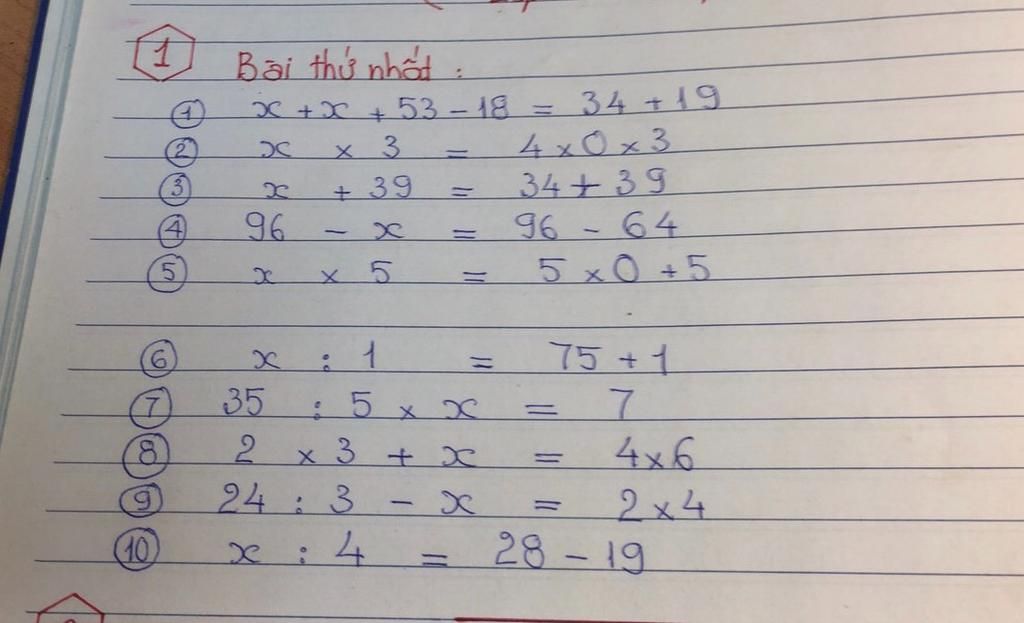 1 Bài thứ nhất :
1 x + x + 53 - 18 = 34 + 19
2 x × 3 = 4 × 0 × 3
3 x + 39 = 34 + 39
4 96 - x = 96 - 64
5 x × 5 = 5 × 0 + 5
6 x : 1 = 75 + 1
7 35 : 5 × x = 7
8 2 × 3 + x = 4 × 6
9 24 : 3 - x = 2 × 4
10 x : 4 = 28 - 19